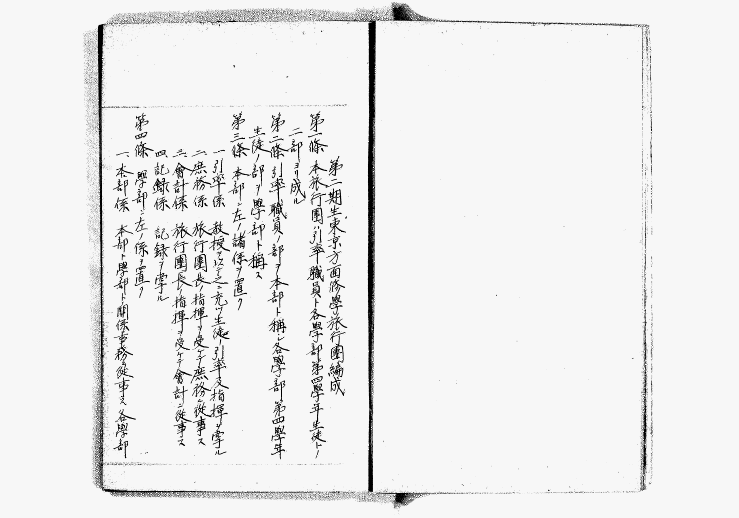 第二期生東京方面修學旅行團編成
第一條 本旅行團ハ引率職員ト各學部第四學年生徒トノ
二部ヨリ成ル
第二條 引率職員ノ部ヲ本部ト稱シ各學部第四學年
生徒ノ部ヲ學部ト稱ス
第三條 本部ニ左ノ諸係ヲ置ク
一、引率係 教授ヲ以テ之ニ充ツ生徒ノ引率及指揮ヲ掌ル
二、庶務係 旅行團長ノ指揮ヲ受ケテ庶務ニ從事ス
三、會計係 旅行團長ノ指揮ヲ受ケテ會計ニ從事ス
四、記録係 記録ヲ掌ル
第四條 學部ニ左ノ係ヲ置ク
一、本部係 本部ト學部ト關係事務ニ從事ス各學部